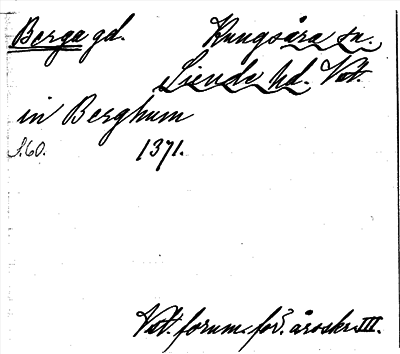 Berga gd. Kungsåra sn.
Siende hd. Vstl.
in Berghum
S.60. 1371.
Vstl. fornm.för. årsskr. III.